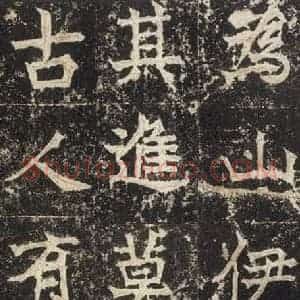 為山伊
其進莫
古人有